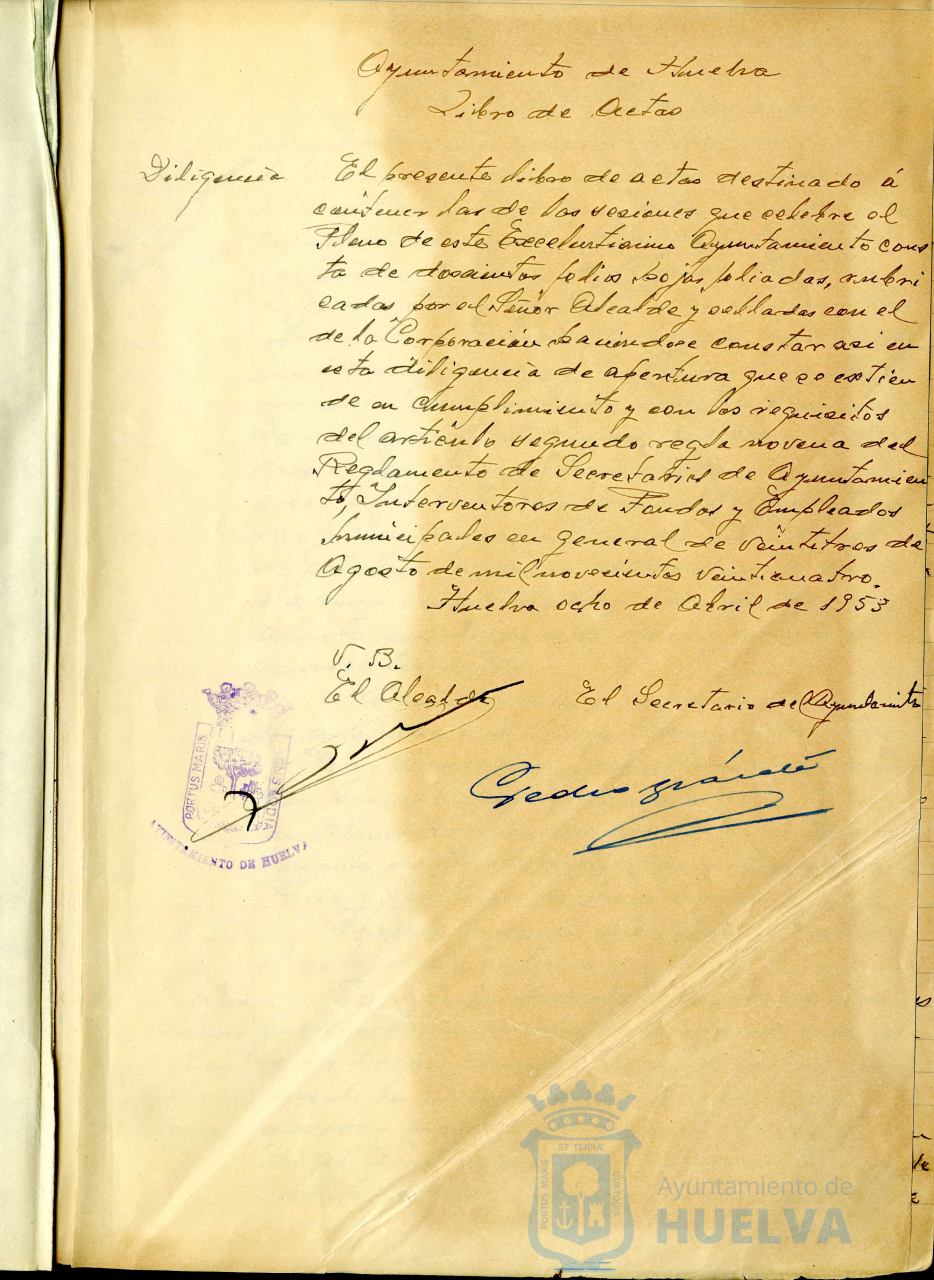 Ayuntamiento de Huelva
Libro de Actas
Diligencia
El presente libro de actas destinado á
contener las de las sesiones que celebre el
Pleno de este Excelentisimo Ayuntamiento cons
ta de doscientos folios hojas, foliadas, rubri
cadas por el Señor Alcalde y selladas con el
de la Corporación haciendose constar asi en
esta diligencia de apertura que se extien
de en cumplimiento y con los requisitos
del articulo segundo regla novena del
Reglamento de Secretarios de Ayuntamien
to, Interventores de Fondos y Empleados
Municipales en general de veintitres de
Agosto de mil novecientos veinticuatro.
Huelva ocho de Abril de 1953
V. B.
El Alcalde
El Secretario del Ayuntamiento
Pedro
PORTUS MARIS
AYUNTAMIENTO DE HUELVA
ET TERRÆ
PORTUS MARIS
CUSTODIA
Ayuntamiento de
HUELVA